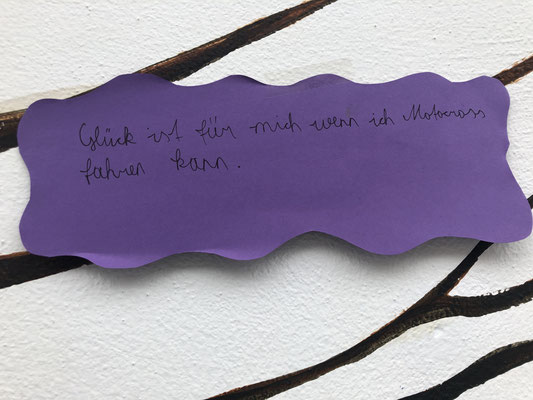 Glück ist für mich wenn ich Motocross
fahren kann.